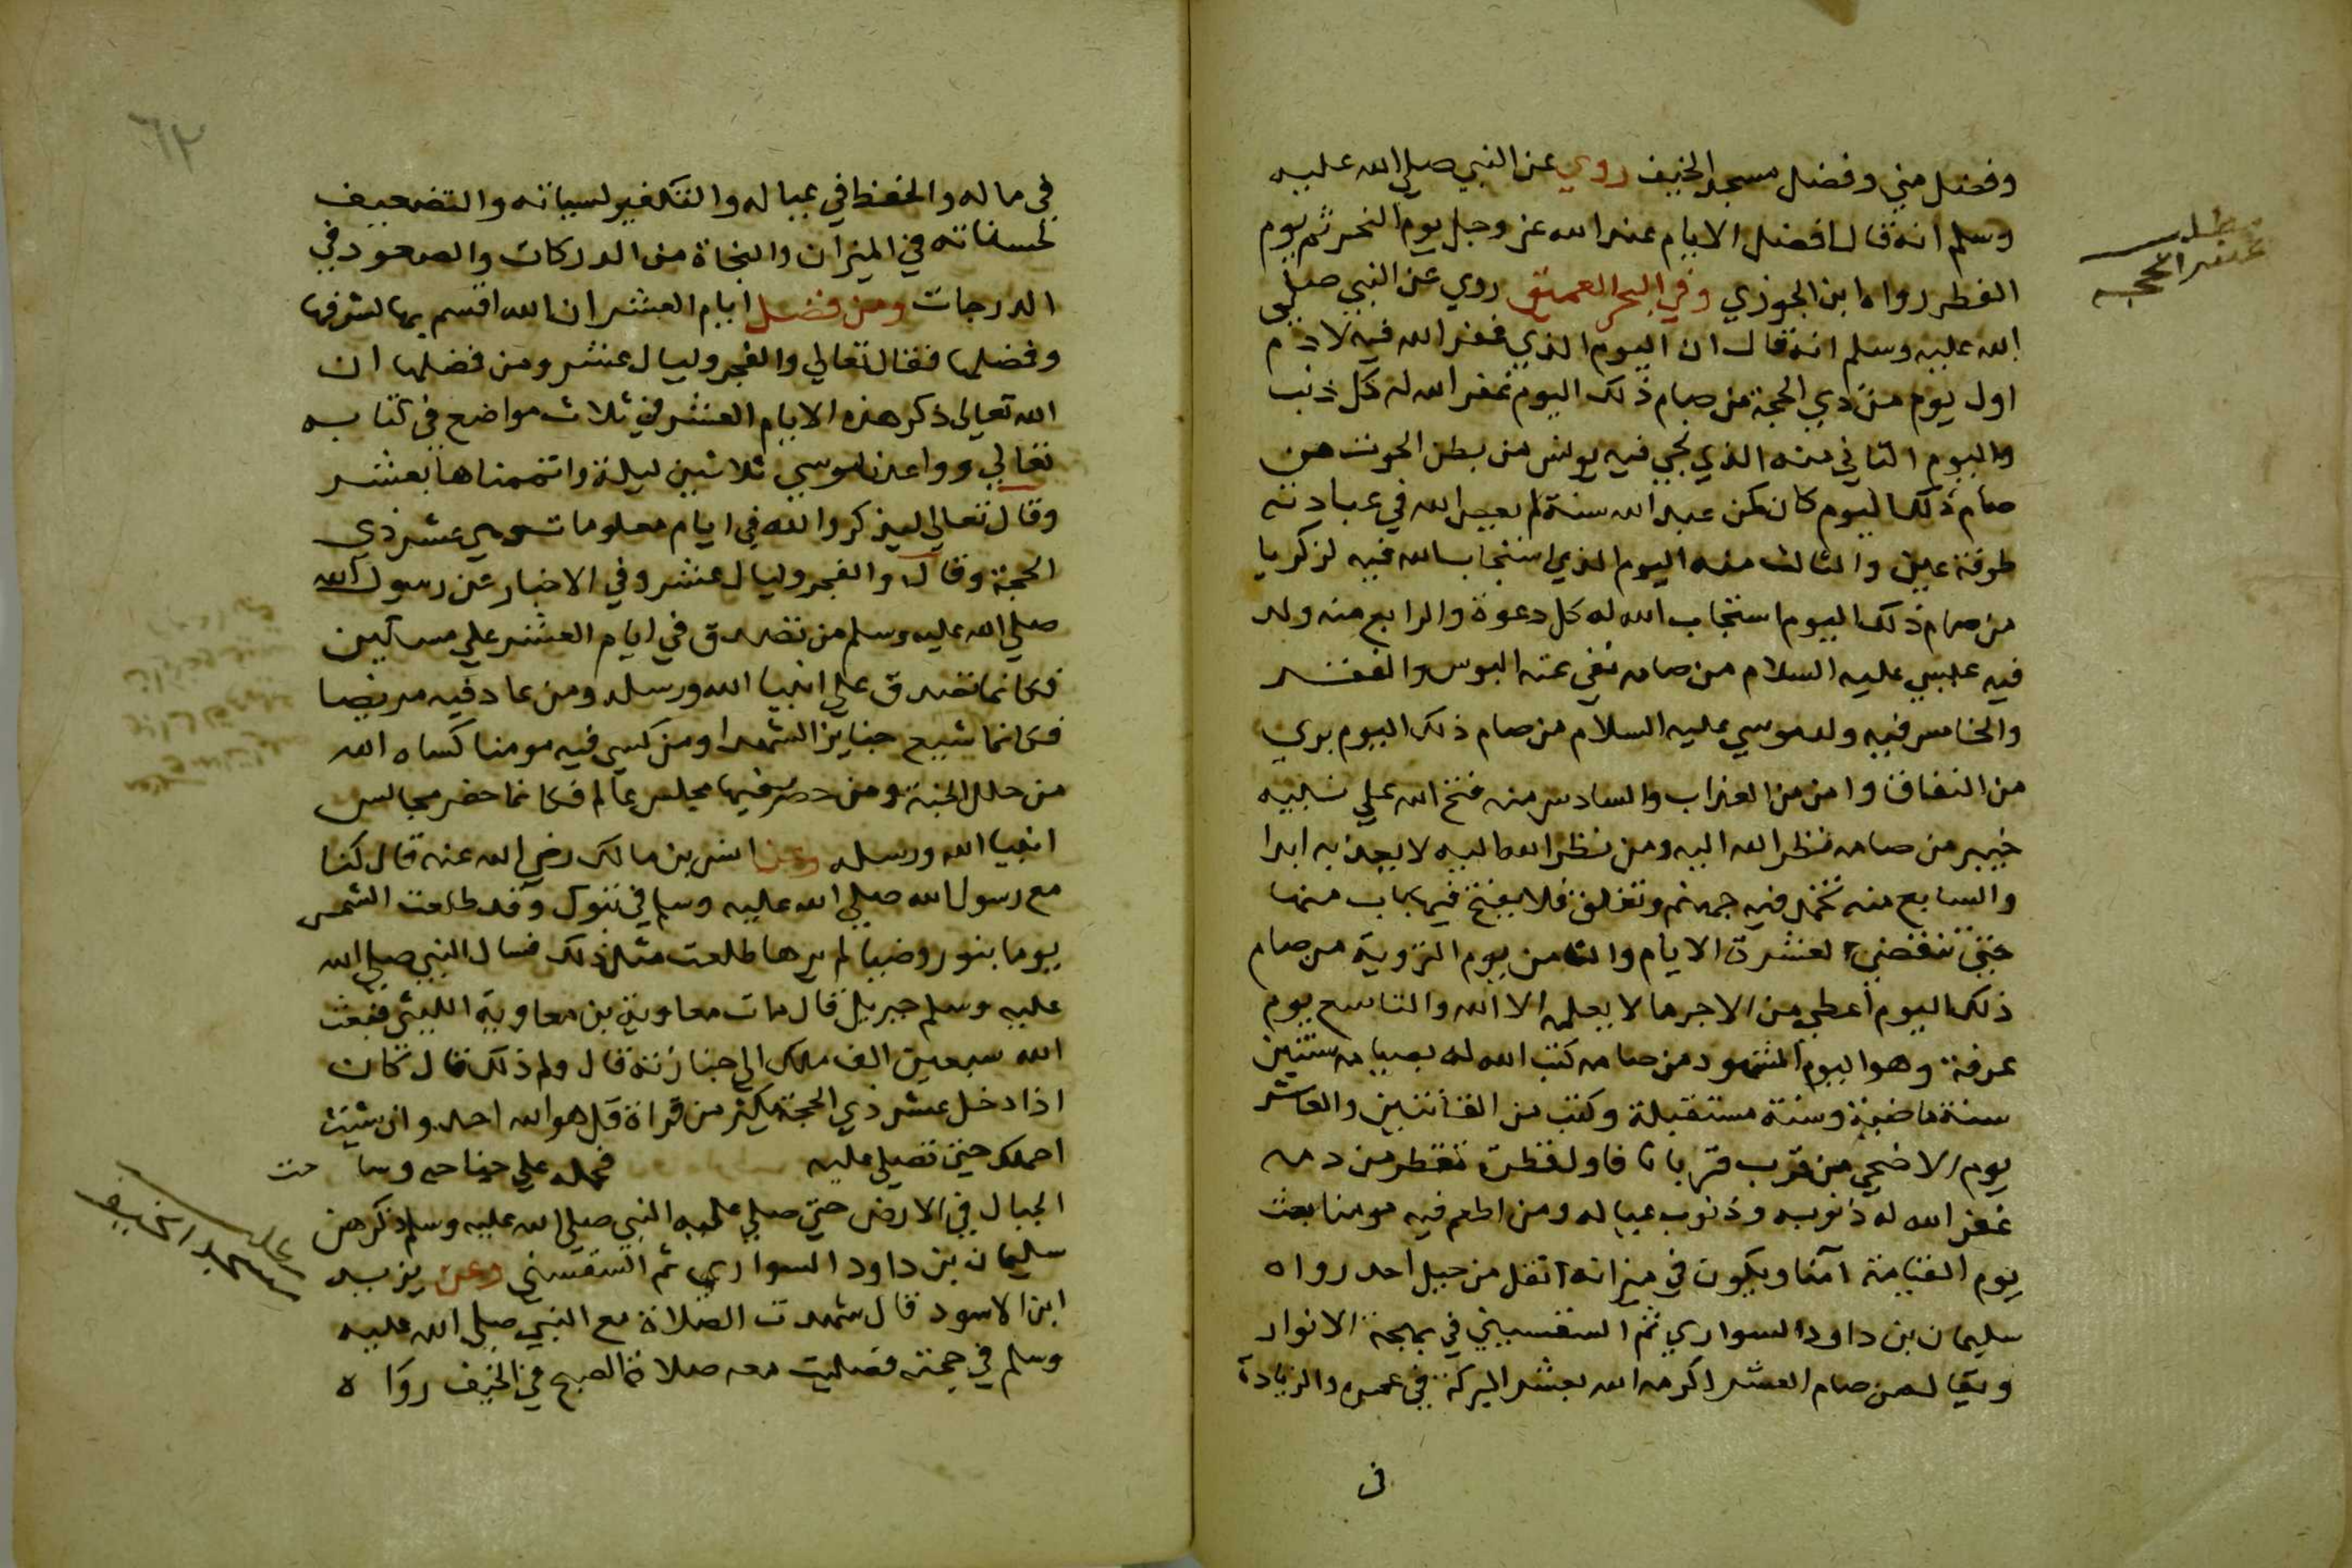 وفضل مني وفضل مسجد الخيف روي عن النبي صلي الله عليه
وسلم انه قال افضل الايام عند الله عز وجل يوم النحر ثم يوم
الفطر رواه ابن الجوزي وفي البحر العميق روي عن النبي صلي
الله عليه وسلم انه قال ان اليوم الذي غفر الله فيه لادم
اول يوم من ذي الحجة من صام ذلك اليوم غفر الله له كل ذنب
واليوم الثاني منه الذي نجي فيه يونس من بطن الحوت من
صام ذلك اليوم كان كمن عبد الله سنة لم يعص الله في عبادته
طرفة عين والثالث منه اليوم الذي استجاب الله فيه لزكريا
من صام ذلك اليوم استجاب الله له كل دعوة والرابع منه ولد
فيه عيسي عليه السلام من صامه نفي عنه البوس والفقر
والخامس فيه ولد موسي عليه السلام من صام ذلك اليوم بري
من النفاق وامن من العذاب والسادس منه فتح الله علي نبيه
خيبر من صامه نظر الله اليه ومن نظر الله اليه لا يعذبه ابدا
والسابع منه تخمد فيه جهنم وتغلق فلا يفتح فيها باب منها
حتي تنقضي العشرة الايام والثامن يوم التروية من صام
ذلك اليوم اعطي من الاجر ما لا يعلمه الا الله والتاسع يوم
عرفة وهو اليوم المشهود من صامه كتب الله له بصيامه سنتين
سنة ماضية وسنة مستقبلة وكتب من القانتين والعاشر
يوم الاضحي من قرب قربانا فاول قطرة تقطر من دمه
غفر الله له ذنوبه وذنوب عياله ومن اطعم فيه مومنا بعث
يوم القيامة آمنا ويكون في ميزانه اثقل من جبل احد رواه
سليمان بن داود السواري ثم السقسيني في بهجة الانوار
ويقال من صام العشر اكرمه الله بعشر البركة في عمره والزيادة
في
عشر الحجه
٦٢
في ماله والحفظ في عياله والتكفير لسياته والتضعيف
لحسناته في الميزان والنجاة من الدركات والصعود في
الدرجات ومن فضل ايام العشر ان الله اقسم بها لشرفها
وفضلها فقال تعالي والفجر وليال عشر ومن فضلها ان
الله تعالى ذكر هذه الايام العشر في ثلاث مواضع في كتابه
تعالي وواعدنا موسي ثلاثين ليلة واتممناها بعشر
وقال تعالي ليذكروا الله في ايام معلومات وهي عشر ذي
الحجة وقال والفجر وليال عشر وفي الاخبار عن رسول الله
صلي الله عليه وسلم من تصدق في ايام العشر علي مسكين
فكانما تصدق علي انبيا الله ورسله ومن عاد فيه مريضا
فكانما شيع جنايز الشهدا ومن كسي فيه مومنا كساه الله
من حلل الجنة ومن حضر فيها مجلس عالم فكانما حضر مجالس
انبيا الله ورسله وعن انس بن مالك رضي الله عنه قال كنا
مع رسول الله صلي الله عليه وسلم في تبوك وقد طلعت الشمس
يوما بنور وضيا لم يرها طلعت مثل ذلك فسال النبي صلي الله
عليه وسلم جبريل قال مات معاوية بن معاوية الليثي فبعث
الله سبعين الف ملك الي جنازته قال ولم ذلك قال كان
اذا دخل عشر ذي الحجة يكثر من قراة قل هو الله احد وان شيت
احملك حتي تصلي عليه فحمله علي جناحه وسا حت
الجبال في الارض حتي صلي عليه النبي صلي الله عليه وسلم ذكرهن
سليمان بن داود السواري ثم السقسيني وعن يزيد
ابن الاسود قال شهدت الصلاة مع النبي صلي الله عليه
وسلم في حجته فصليت معه صلاة الصبح في الخيف رواه
مسجد الخيف